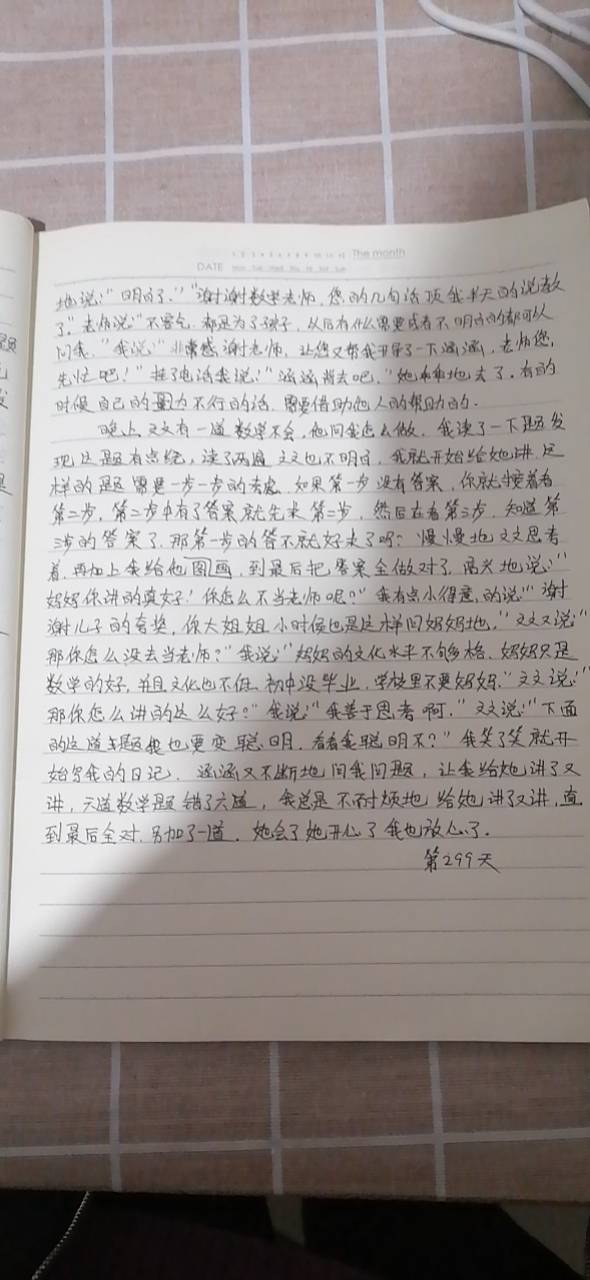 The month
DATE Mon Tue Wed Thu Fri Sat Sun
地说:"明白了。""谢谢数学老师,您的几句话顶我半天的说教
了。"老师说:"不客气,都是为了孩子,以后有什么需要或者不明白的都可以
问我。"我说:"非常感谢老师,让您又帮我开导了一下涵涵,老师您
先忙吧!"挂了电话我说:"涵涵背去吧。"她乖乖地去了。有的
时候自己的量力不行的话,需要借助他人的帮助的。
晚上文文有一道数学不会,他问我怎么做,我读了一下题发
现这题有点绕,读了两遍文文也不明白,我就开始给她讲,这
样的题需要一步一步的考虑,如果第一步没有答案,你就接着看
第二步,第二步中有了答案就先来第二步,然后在看第三步,知道第
三步的答案了,那第一步的答不就好来了吗?慢慢地文文思考
着,再加上我给他图画,到最后把答案全做对了,高兴地说:"
妈妈你讲的真好!你怎么不当老师呢?"我有点小得意的说:"谢
谢儿子的夸奖,你大姐姐小时候也是这样问妈妈地,"文文又说:"
那你怎么没去当老师?"我说:"妈妈的文化水平不够格,妈妈只是
数学的好,并且文化也不低,初中没毕业,学校里不要妈妈。"文文说:"
那你怎么讲的这么好?"我说:"我善于思考啊。"文文说:"下面
的这道题我也要变聪明,看看我聪明不?"我笑了笑就开
始写我的日记,涵涵又不断地问我问题,让我给她讲了又
讲,六道数学题错了六道,我总是不耐烦地给她讲了又讲,直
到最后全对,另加了一道,她会了她开心了我也放心了。
第299天